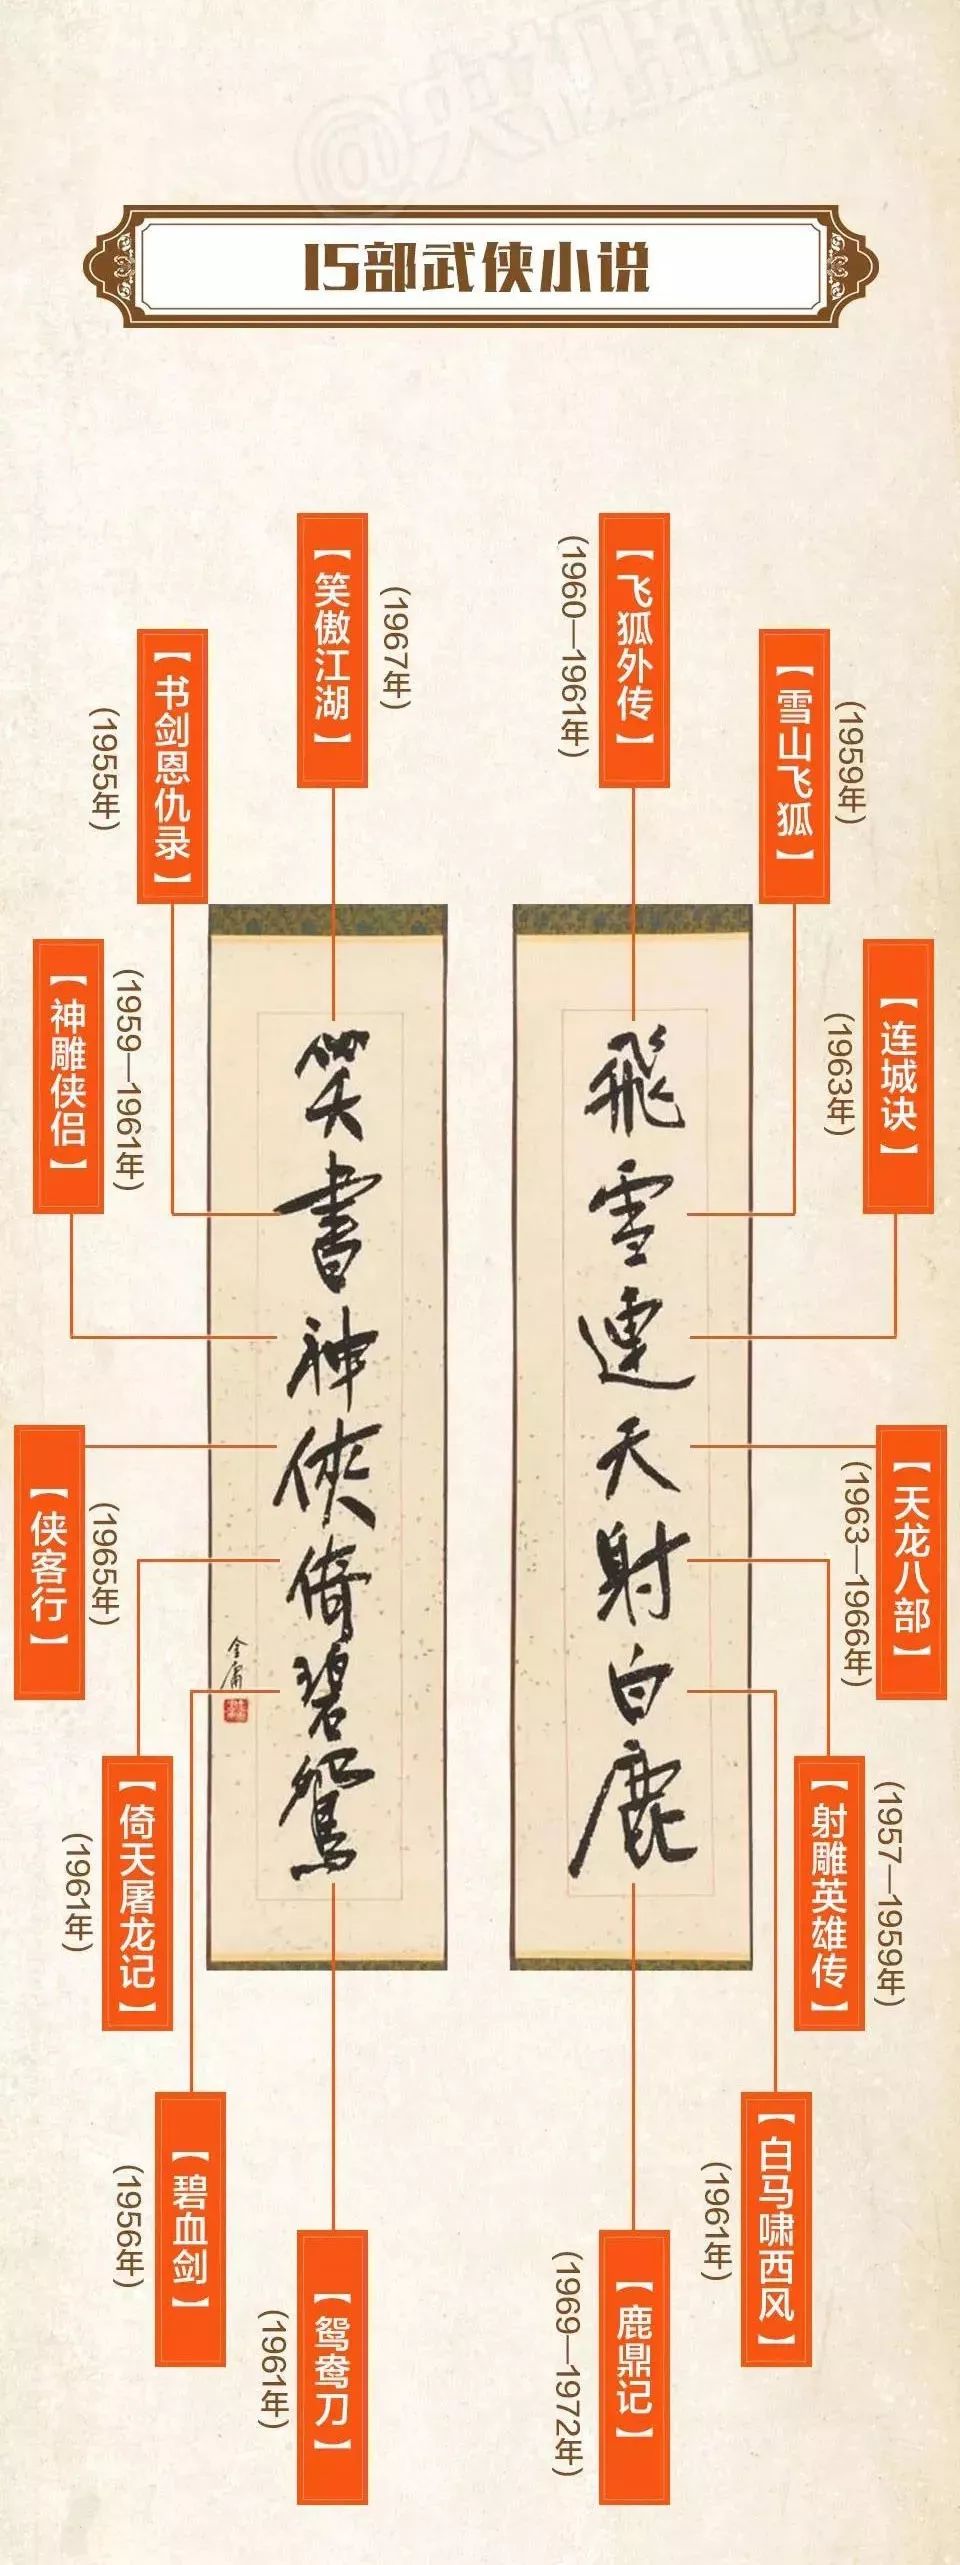 @央视新闻
15部武侠小说
【飞狐外传】
(1960—1961年)
【雪山飞狐】
(1959年)
【连城诀】
(1963年)
【天龙八部】
(1963—1966年)
【射雕英雄传】
(1957—1959年)
【白马啸西风】
(1961年)
【鹿鼎记】
(1969—1972年)
飛雪連天射白鹿
【笑傲江湖】
(1967年)
【书剑恩仇录】
(1955年)
【神雕侠侣】
(1959—1961年)
【侠客行】
(1965年)
【倚天屠龙记】
(1961年)
【碧血剑】
(1956年)
【鸳鸯刀】
(1961年)
笑書神俠倚碧鴛
金庸